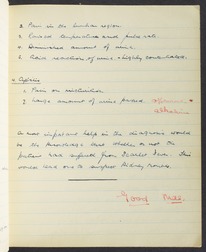 2. Pain in the lumbar region.
3. Raised temperature and pulse rate.
4. Diminished amount of urine.
5. reaction of urine - highly concentrated.
1. Pain on micturition
2. Large amount of urine passed
An important help in the diagnosis would
be the knowledge that whether or not the
patient had suffered from Scarlet Fever. This
would lead one to suspect Kidney trouble.